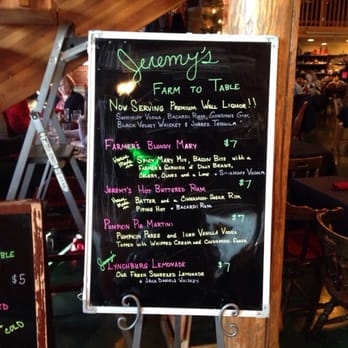 Jeremy's
FARM TO TABLE
NOW SERVING PREMIUM WELL LIQUOR!!
SMIRNOFF VODKA, BACARDI RUM, GORDONS GIN,
BLACK VELVET WHISKEY & JUAREZ TEQUILA
FARMER'S BLOODY MARY $7
SPICY MARY MIX, BACON BITE WITH A
FARMER'S GARNISH OF DILLY BEANS,
CELERY, OLIVES AND A LIME & SMIRNOFF VODKA
JEREMY'S HOT BUTTERED RUM $7
BATTER AND A CINNAMON SUGAR RIM
PIPING HOT & BACARDI RUM
PUMPKIN PIE MARTINI $7
PUMPKIN PUREE AND ICED VANILLA VODKA
TOPPED WITH WHIPPED CREAM AND CINNAMON
Jeremy's
LYNCHBURG LEMONADE $7
OUR FRESH SQUEEZED LEMONADE
& JACK DANIELS WHISKEY
BLE
$5
COLD